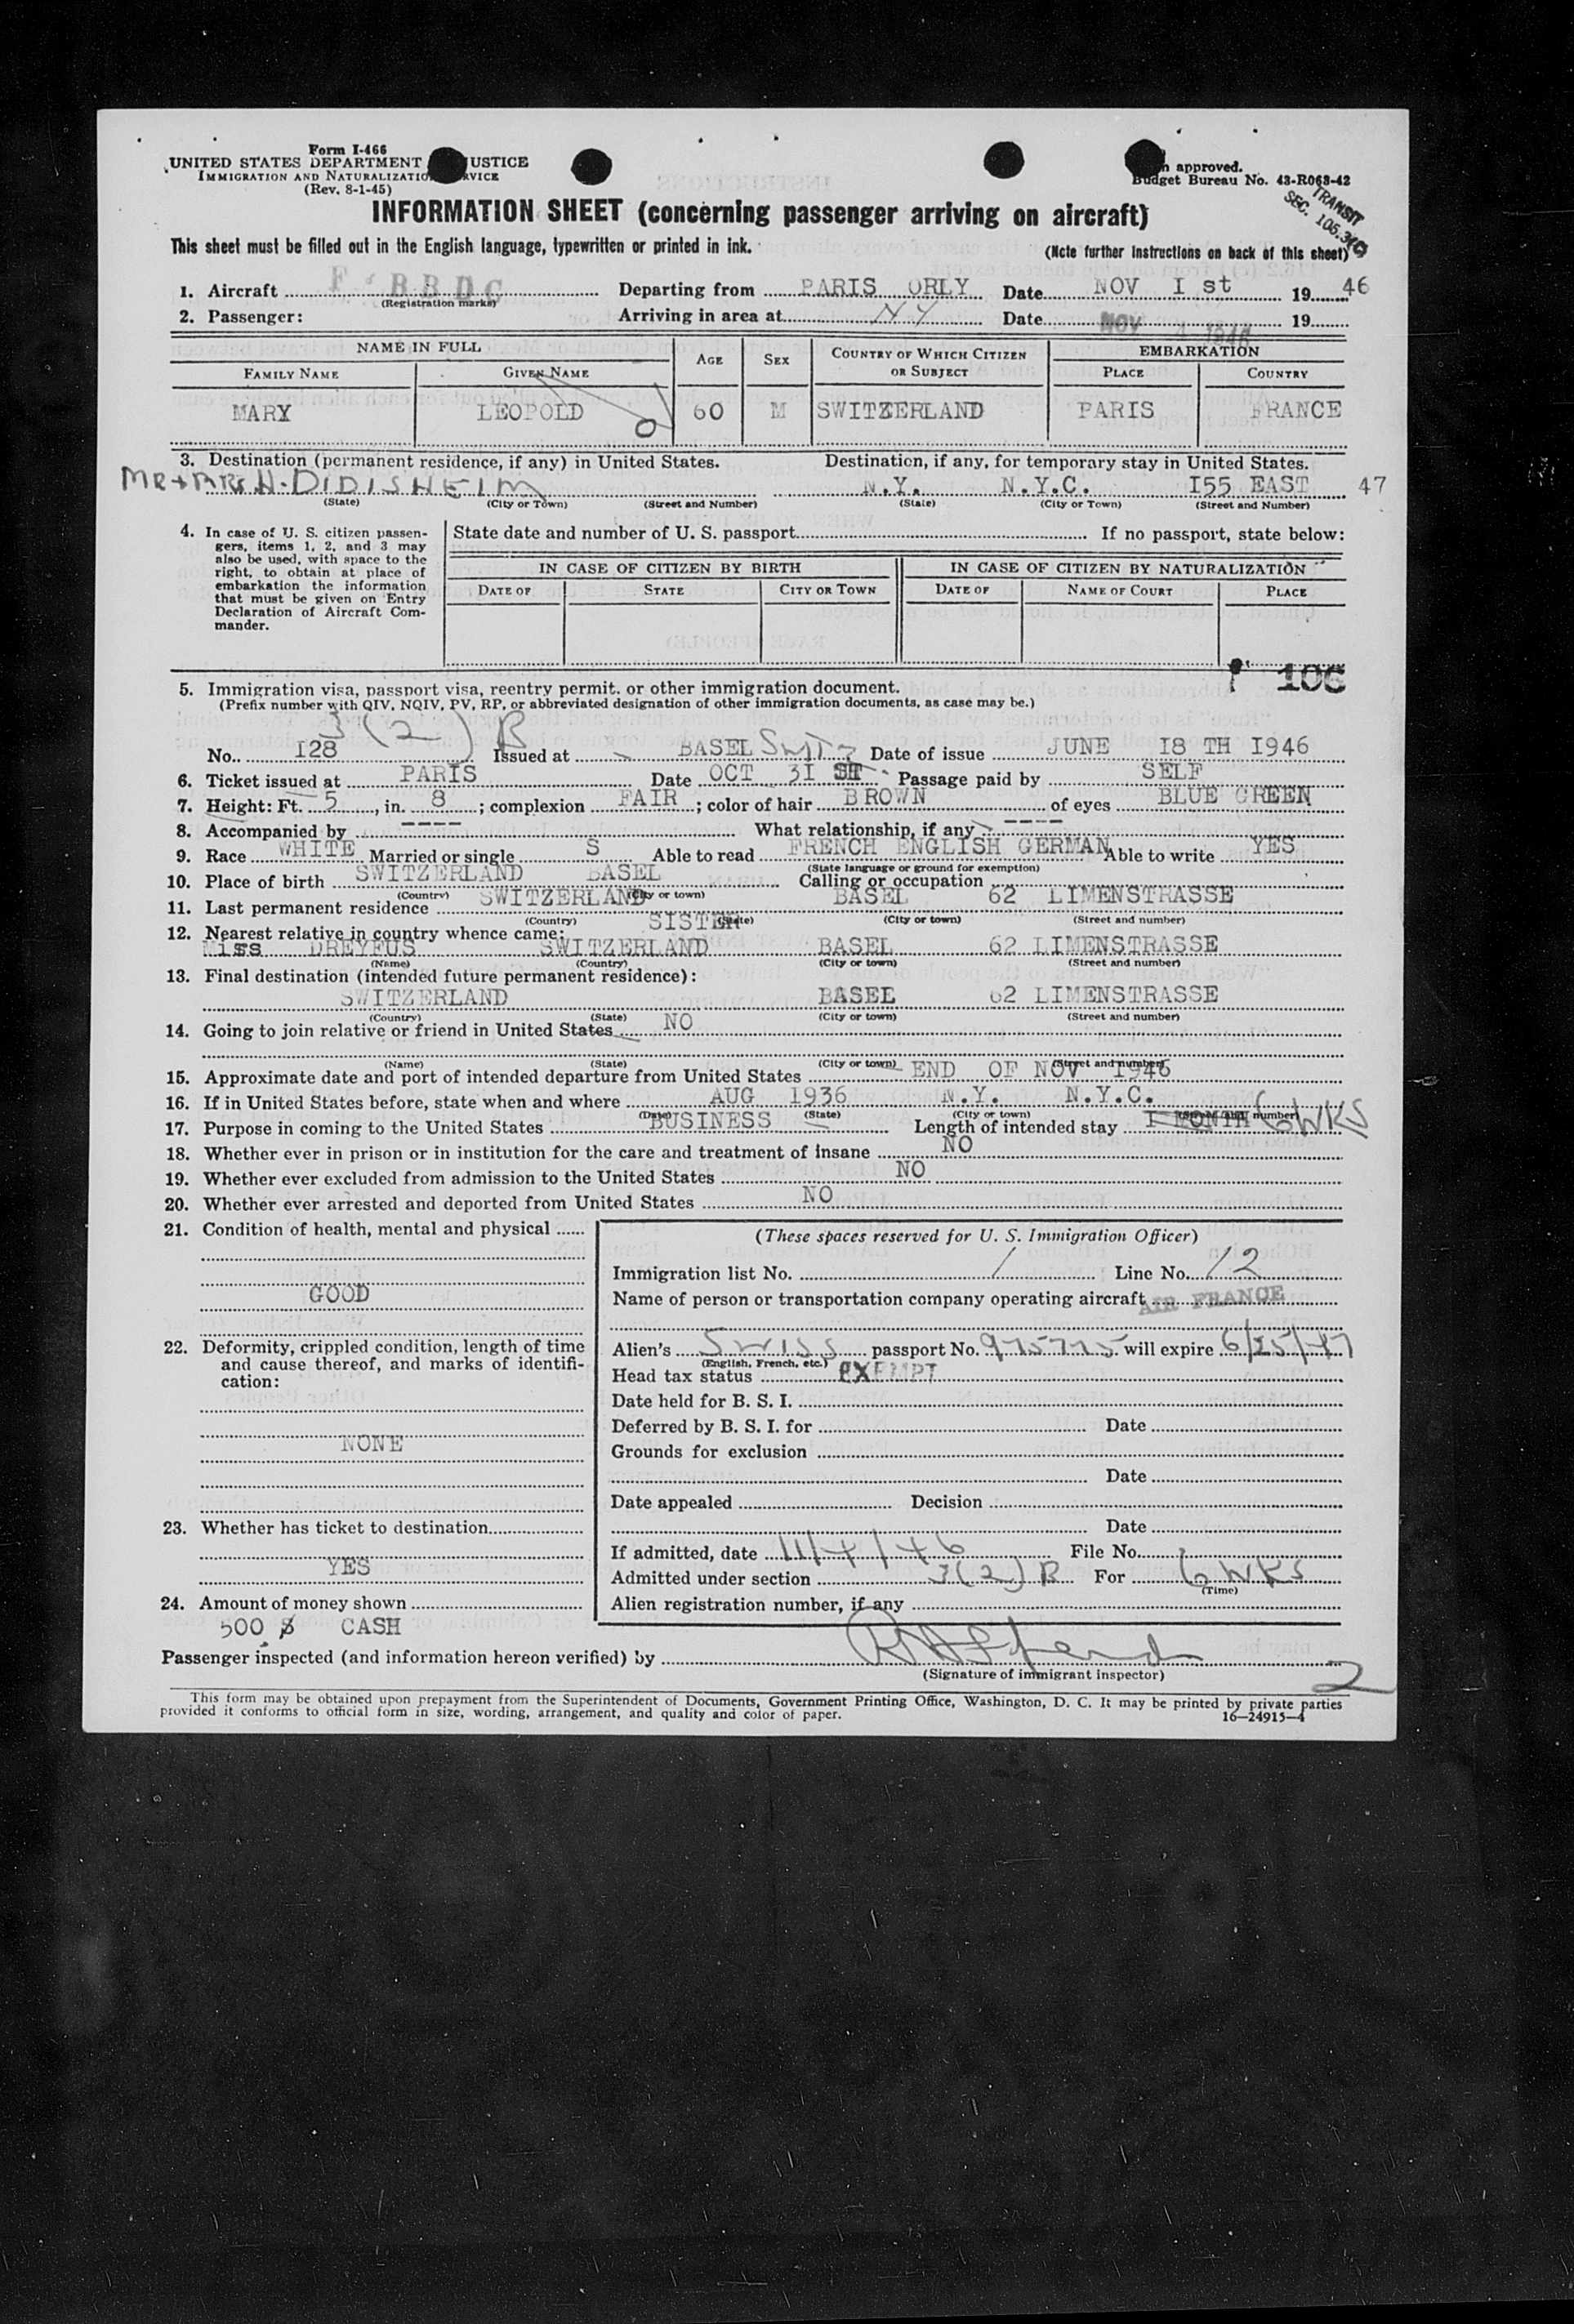 Form I-466
UNITED STATES DEPARTMENT USTICE
IMMIGRATION AND NATURALIZATIO RVICE
(Rev. 8-1-45)
n approved.
Budget Bureau No. 43-R063-42
TRANSIT
SEC. 105.3(C)
INFORMATION SHEET (concerning passenger arriving on aircraft)
This sheet must be filled out in the English language, typewritten or printed in ink.
(Note further instructions on back of this sheet)
1. Aircraft F BBDC Departing from PARIS ORLY Date NOV I st 19 46
(Registration marks)
2. Passenger: Arriving in area at NY Date NOV 4 1946 19
NAME IN FULL AGE SEX COUNTRY OF WHICH CITIZEN OR SUBJECT EMBARKATION
FAMILY NAME GIVEN NAME PLACE COUNTRY
MARY LEOPOLD 60 M SWITZERLAND PARIS FRANCE
3. Destination (permanent residence, if any) in United States. Destination, if any, for temporary stay in United States.
MR + MRS N. DIDISHEIM N.Y. N.Y.C. I55 EAST 47
(State) (City or Town) (Street and Number) (State) (City or Town) (Street and Number)
4. In case of U. S. citizen passengers, items 1, 2, and 3 may also be used, with space to the right, to obtain at place of embarkation the information that must be given on Entry Declaration of Aircraft Commander.
State date and number of U. S. passport If no passport, state below:
IN CASE OF CITIZEN BY BIRTH IN CASE OF CITIZEN BY NATURALIZATION
DATE OF STATE CITY OR TOWN DATE OF NAME OF COURT PLACE
106
5. Immigration visa, passport visa, reentry permit, or other immigration document.
(Prefix number with QIV, NQIV, PV, RP, or abbreviated designation of other immigration documents, as case may be.)
3(2) B
No. I28 Issued at BASEL Switz Date of issue JUNE I8 TH I946
6. Ticket issued at PARIS Date OCT 3I ST Passage paid by SELF
7. Height: Ft. 5, in. 8; complexion FAIR; color of hair BROWN of eyes BLUE GREEN
8. Accompanied by ---- What relationship, if any ----
9. Race WHITE Married or single S Able to read FRENCH ENGLISH GERMAN Able to write YES
(State language or ground for exemption)
10. Place of birth SWITZERLAND BASEL Calling or occupation
(Country) (City or town)
11. Last permanent residence SWITZERLAND BASEL 62 LIMENSTRASSE
(Country) (State) (City or town) (Street and number)
12. Nearest relative in country whence came: SISTER
Miss DREYFUS SWITZERLAND BASEL 62 LIMENSTRASSE
(Name) (Country) (City or town) (Street and number)
13. Final destination (intended future permanent residence):
SWITZERLAND BASEL 62 LIMENSTRASSE
(Country) (State) (City or town) (Street and number)
14. Going to join relative or friend in United States NO
(Name) (State) (City or town) (Street and number)
15. Approximate date and port of intended departure from United States END OF NOV I946
16. If in United States before, state when and where AUG I936 N.Y. N.Y.C.
(Date) (State) (City or town) (Street and number)
17. Purpose in coming to the United States BUSINESS Length of intended stay I MONTH 6 WKS
18. Whether ever in prison or in institution for the care and treatment of insane NO
19. Whether ever excluded from admission to the United States NO
20. Whether ever arrested and deported from United States NO
21. Condition of health, mental and physical
GOOD
22. Deformity, crippled condition, length of time and cause thereof, and marks of identification:
NONE
23. Whether has ticket to destination
YES
24. Amount of money shown
500 $ CASH
(These spaces reserved for U. S. Immigration Officer)
Immigration list No. 1 Line No. 12
Name of person or transportation company operating aircraft AIR FRANCE
Alien's SWISS passport No. 975775 will expire 6/25/47
(English, French, etc.)
Head tax status EXEMPT
Date held for B. S. I.
Deferred by B. S. I. for Date
Grounds for exclusion
Date
Date appealed Decision
Date
If admitted, date 11/4/46 File No.
Admitted under section 3(2) B For 6 WKS
(Time)
Alien registration number, if any
Passenger inspected (and information hereon verified) by
(Signature of immigrant inspector)
2
This form may be obtained upon prepayment from the Superintendent of Documents, Government Printing Office, Washington, D. C. It may be printed by private parties
provided it conforms to official form in size, wording, arrangement, and quality and color of paper.
16—24915-4